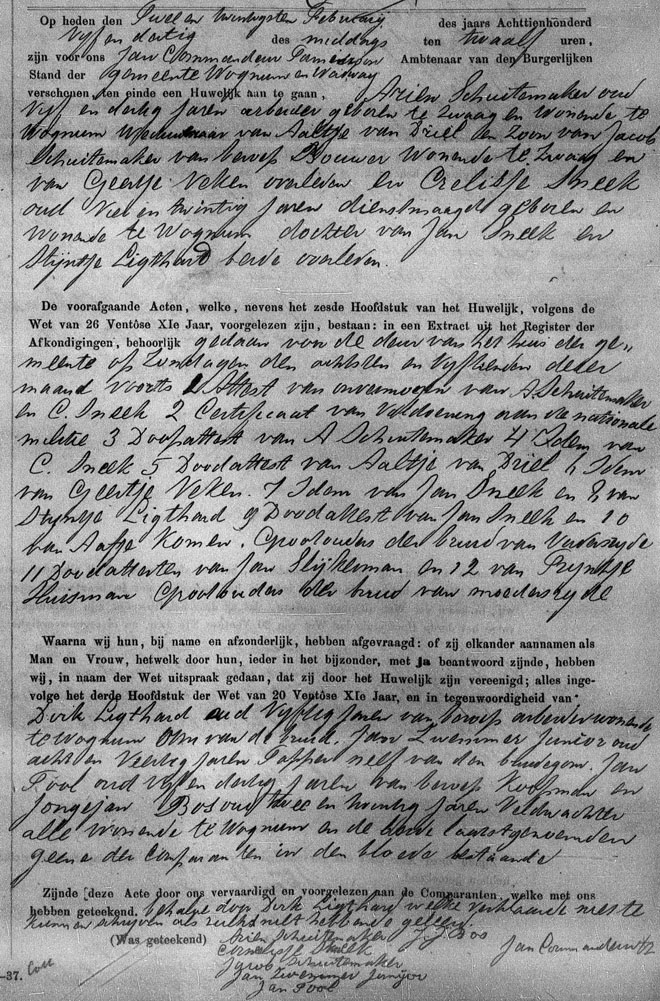 Op heden den Twee en twintigsten February des jaars Achttienhonderd
Vijf en dertig des middags ten twaalf uren,
zijn voor ons Jan Commandeur Ambtenaar van den Burgerlijken
Stand der gemeente Wognum en Wadway
verschenen, ten einde een Huwelijk aan te gaan, Arien Schuitemaker oud
Vijf en dertig Jaren arbeider geboren te Zwaag en wonende te
Wognum Weduwnaar van Aaltje van Driel en Zoon van Jacob
Schuitemaker van beroep Bouwer Wonende te Zwaag en
van Geertje Veken overleden en Crelisje Sneek
oud Vier en twintig Jaren dienstmaagd geboren en
wonende te Wognum dochter van Jan Sneek en
Stijntje Ligthard beide overleden.
De voorafgaande Acten, welke, nevens het zesde Hoofdstuk van het Huwelijk, volgens de
Wet van 26 Ventôse XIe Jaar, voorgelezen zijn, bestaan: in een Extract uit het Register der
Afkondigingen, behoorlijk gedaan voor de deur van het huis der ge„
meente op Zondagen den achtsten en Vijftienden dezer
maand voorts 1 Attest van onvermogen van A Schuitemaker
en C. Sneek 2 Certificaat van Voldoening aan de nationale
militie 3 Doopattest van A Schuitemaker 4 Idem van
C. Sneek 5 Doodattest van Aaltje van Driel 6 Idem
van Geertje Veken. 7 Idem van Jan Sneek en 8 van
Styntje Ligthard 9 Doodattest van Jan Sneek en 10
van Aafje Komen. Grootouders der bruid van Vaderszyde
11 Doodattesten van Jan Slijkerman en 12 van Tryntje
Huisman Grootouders der bruid van moederszyde
Waarna wij hun, bij name en afzonderlijk, hebben afgevraagd: of zij elkander aannamen als
Man en Vrouw, hetwelk door hun, ieder in het bijzonder, met ja beantwoord zijnde, hebben
wij, in naam der Wet uitspraak gedaan, dat zij door het Huwelijk zijn vereenigd; alles inge-
volge het derde Hoofdstuk der Wet van 20 Ventôse XIe Jaar, en in tegenwoordigheid van
Dirk Ligthard oud Vyftig Jaren van beroep arbeider wonende
te Wognum Oom van de bruid. Jan Zwemmer Junior oud
acht en Veertig Jaren Tapper neef van den bruidegom. Jan
Pool oud Vijf en dertig Jaren van beroep Koopman en
Jongejan Bos oud twee en twintig Jaren Veldwachter
alle Wonende te Wognum en de twee laatstgenoemden
geene der Comparanten in den bloede bestaande
Zijnde [deze Acte door ons vervaardigd en voorgelezen aan de Comparanten, welke met ons
hebben geteekend. behalve door Dirk Ligthard welke verklaarde niet te
kunnen schrijven als zulks niet hebbende geleerd.
(Was geteekend) Arien Schuitemaker J. J. Bos
Cornelisje Sneek Jan Commandeur
Jacob Schuitemaker
Jan Zwemmer Junijor
Jan Pool
-37. Coll